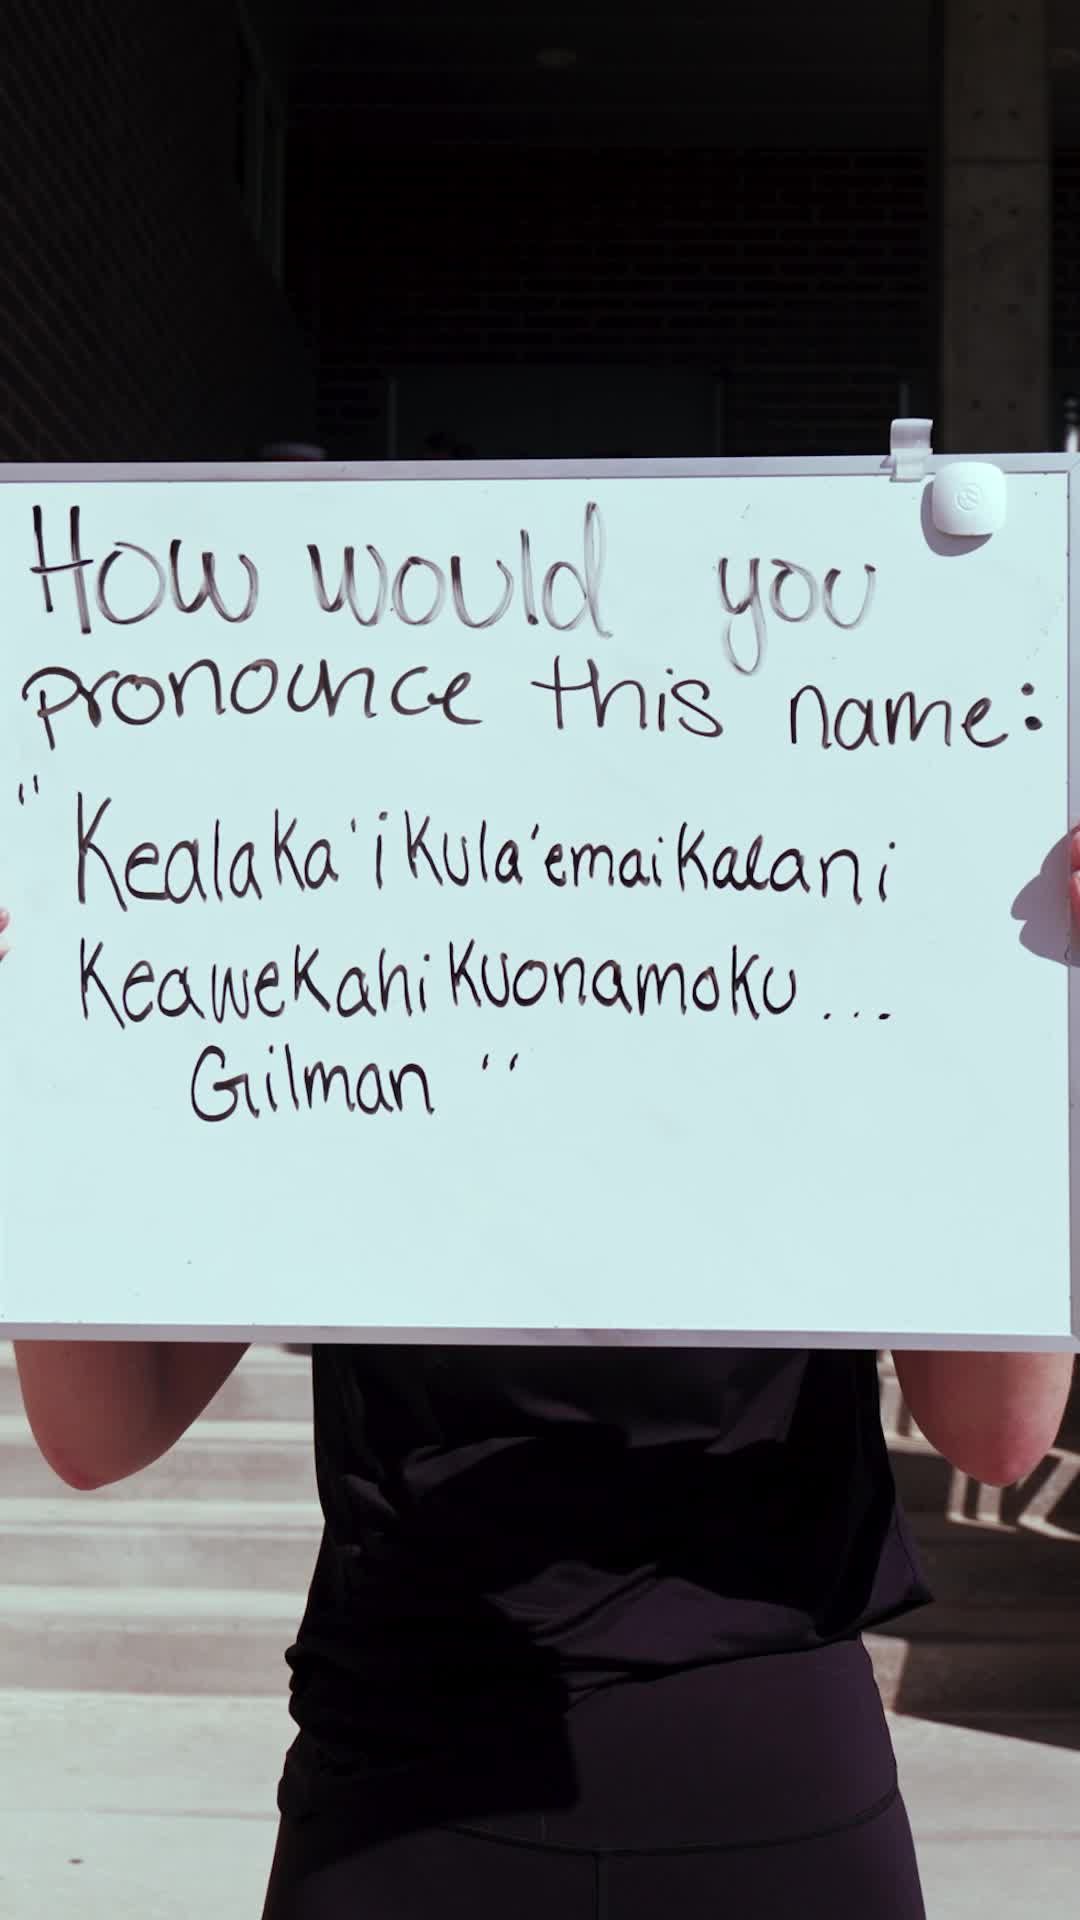 How would you
pronounce this name:
"Kealaka'ikula'emaikalani
Keawekahikuonamoku...
Gilman"